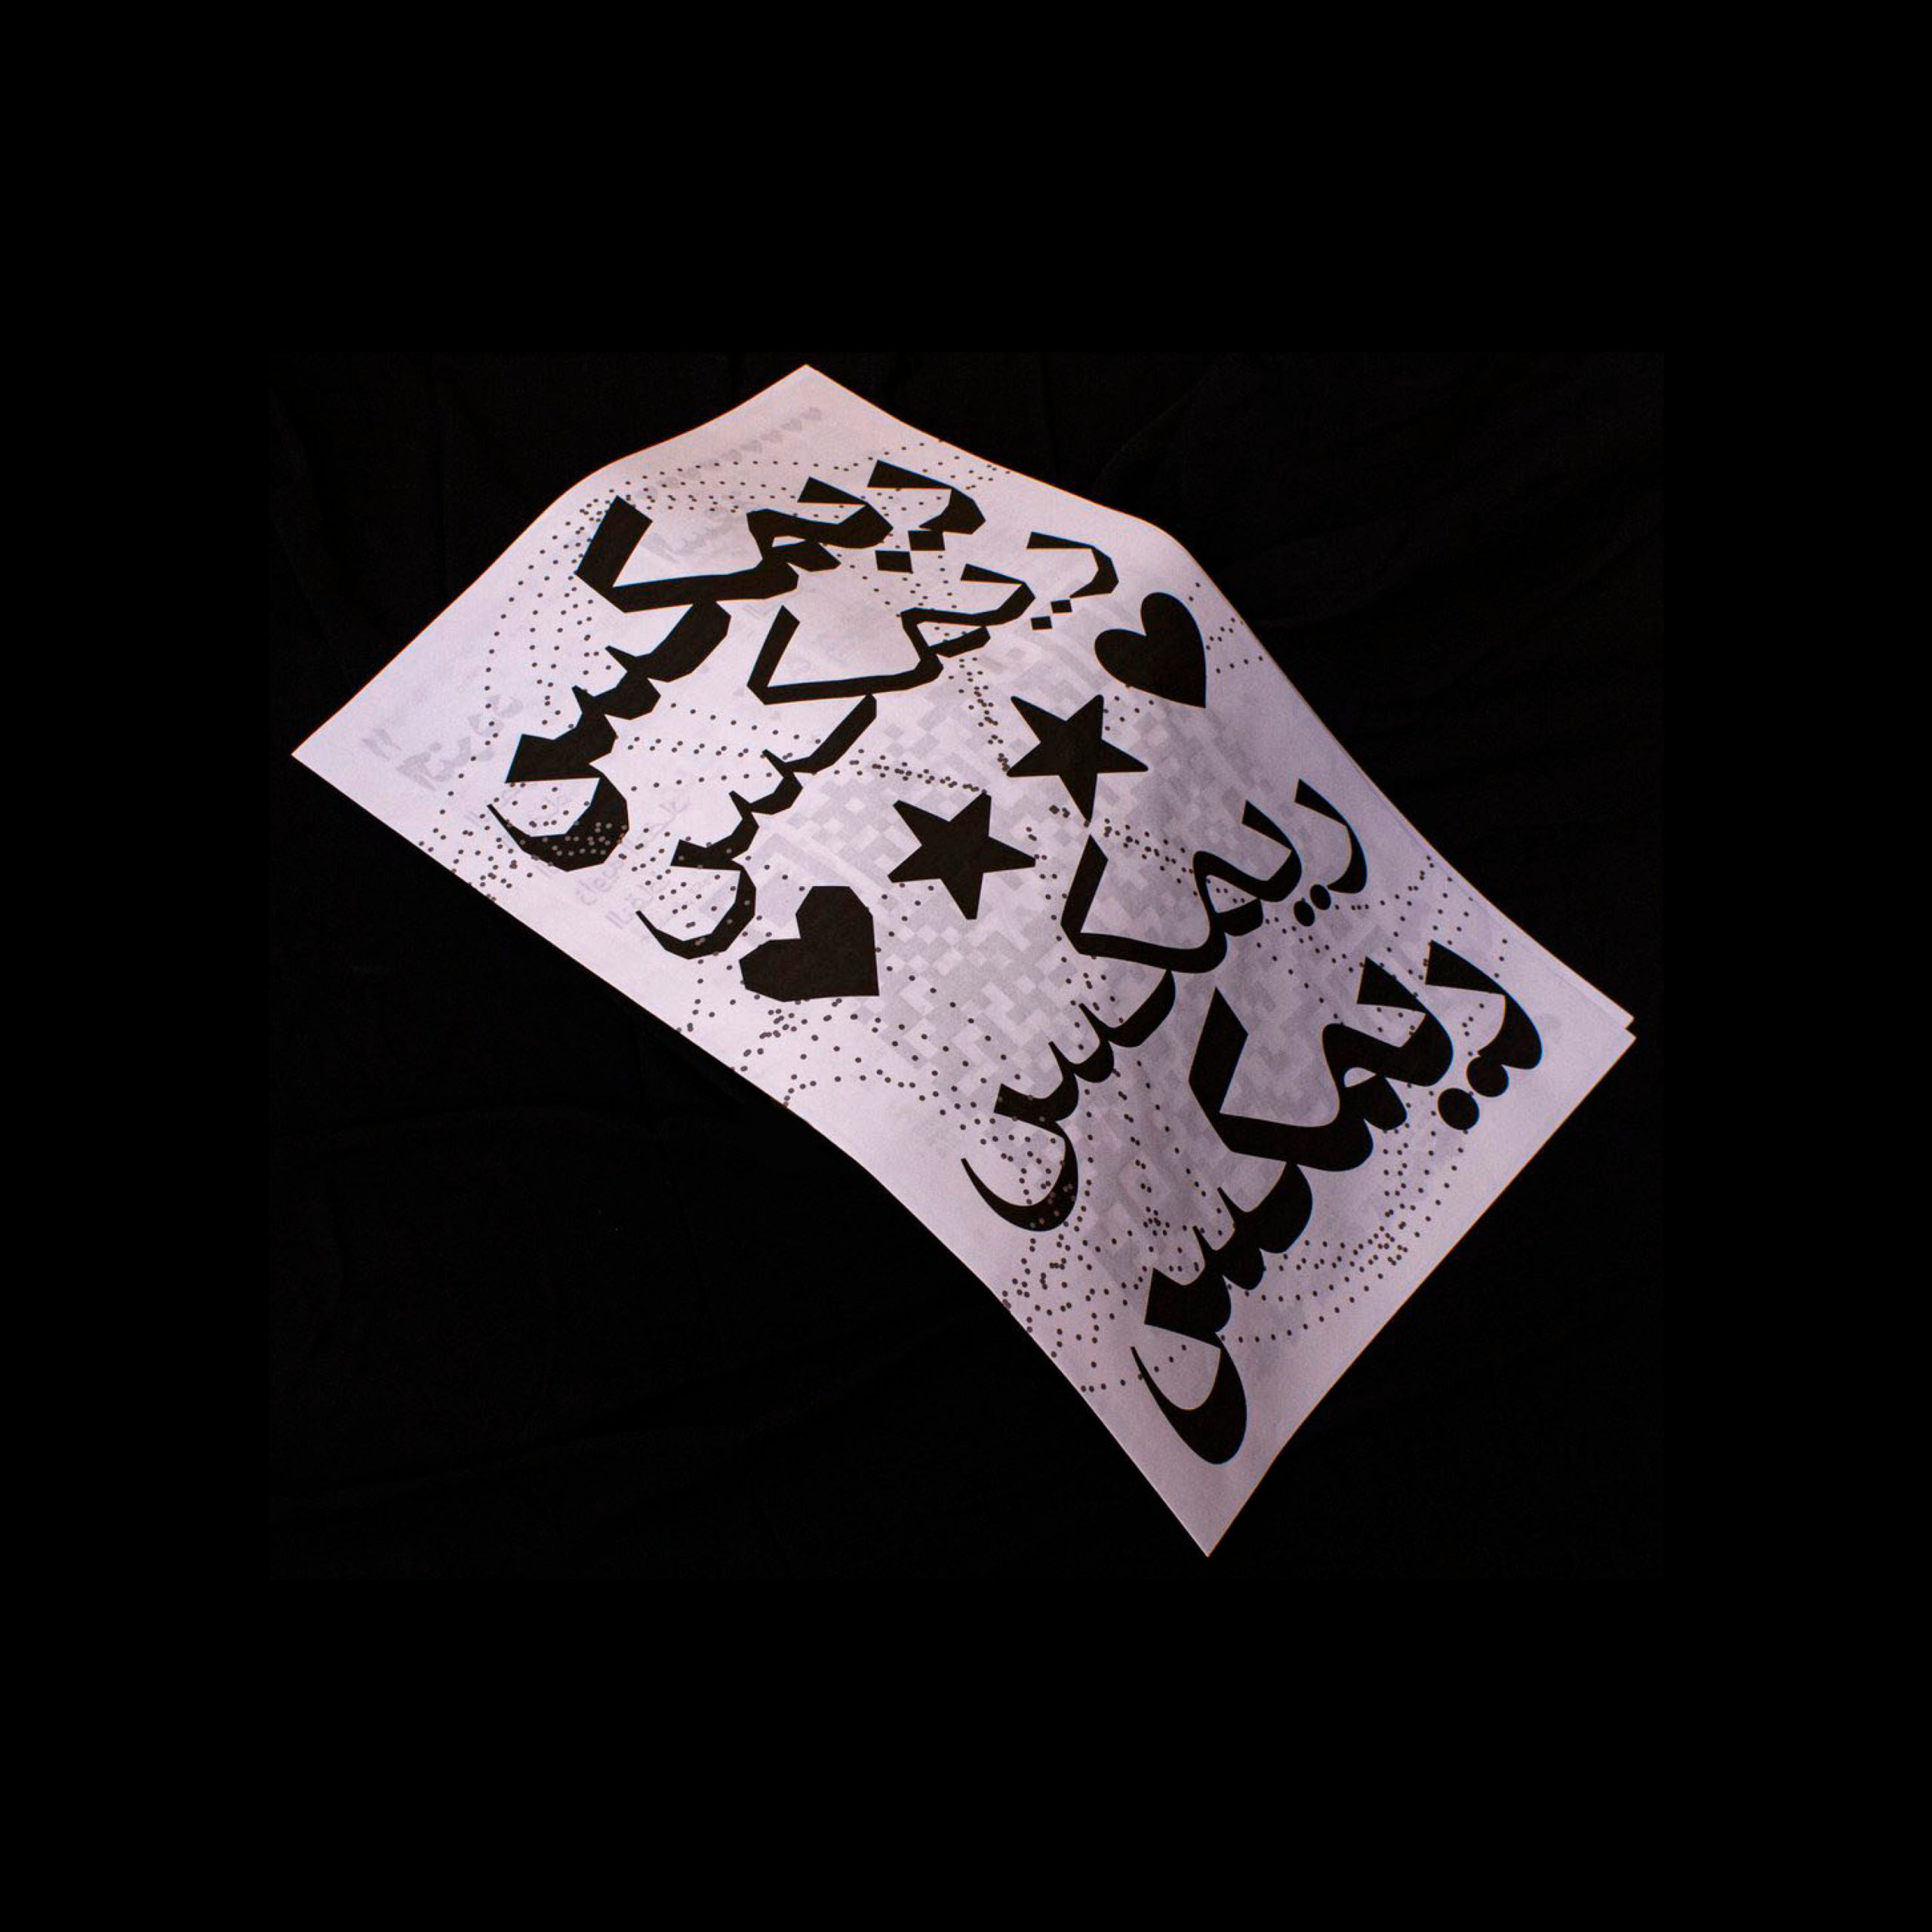 ريمكس
ريمكس
ريمكس
ريمكس